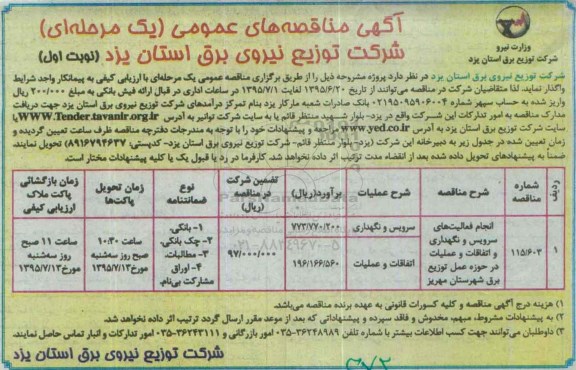 آگهی مناقصه‌های عمومی (یک مرحله‌ای)
شرکت توزیع نیروی برق استان یزد (نوبت اول)
وزارت نیرو
شرکت توزیع برق استان یزد
شرکت توزیع نیروی برق استان یزد در نظر دارد پروژه مشروحه ذیل را از طریق برگزاری مناقصه عمومی یک مرحله‌ای با ارزیابی کیفی به پیمانکار واجد شرایط
واگذار نماید. لذا متقاضیان شرکت در مناقصه می‌توانند از تاریخ ۱۳۹۵/۶/۲۰ لغایت ۱۳۹۵/۷/۱ در ساعات اداری در قبال ارائه فیش بانکی به مبلغ ۲۰۰/۰۰۰ ریال
واریز شده به حساب سپهر شماره ۰۲۱۹۵۰۹۵۹۰۶۰۰۴ بانک صادرات شعبه مارکار یزد بنام تمرکز درآمدهای شرکت توزیع نیروی برق استان یزد جهت دریافت
مدارک مناقصه به امور تدارکات این شرکت واقع در یزد- بلوار شهید منتظر قائم یا به سایت شرکت توانیر به آدرس www.Tender.tavanir.org.ir یا
سایت شرکت توزیع برق استان یزد به آدرس www.yed.co.ir مراجعه و پیشنهادات خود را با توجه به مندرجات دفترچه مناقصه ظرف ساعت تعیین گردیده و
زمان تعیین شده در جدول زیر به دبیرخانه این شرکت (یزد- بلوار منتظر قائم- شرکت توزیع نیروی برق استان یزد- کدپستی: ۸۹۱۶۷۹۴۶۳۷) تحویل نمایند.
ضمناً به پیشنهادهای تحویل داده شده بعد از انقضاء مدت ترتیب اثر داده نخواهد شد. کارفرما در رد یا قبول یک یا کلیه پیشنهادات مختار است.
ردیف | شماره مناقصه | شرح مناقصه | شرح عملیات | برآورد(ریال) | تضمین شرکت در مناقصه (ریال) | نوع ضمانتنامه | زمان تحویل پاکت‌ها | زمان بازگشائی پاکت ملاک ارزیابی کیفی
۱ | ۱۱۵/۶۰۳ | انجام فعالیت‌های سرویس و نگهداری و اتفاقات و عملیات در حوزه عمل توزیع برق شهرستان مهریز | سرویس و نگهداری | ۷۷۳/۷۷۰/۲۰۰ | ۹۷/۰۰۰/۰۰۰ | ۱- بانکی، ۲- چک بانکی، ۳- مطالبات، ۴- اوراق مشارکت بی‌نام. | ساعت ۱۰:۳۰ صبح روز سه‌شنبه مورخ ۱۳۹۵/۷/۱۳ | ساعت ۱۱ صبح روز سه‌شنبه مورخ ۱۳۹۵/۷/۱۳
اتفاقات و عملیات | ۱۹۶/۱۶۶/۵۶۰
۱) هزینه درج آگهی مناقصه و کلیه کسورات قانونی به عهده برنده مناقصه می‌باشد.
۲) به پیشنهادات مشروط، مبهم، مخدوش و فاقد سپرده و پیشنهاداتی که بعد از موعد مقرر ارسال گردد ترتیب اثر داده نخواهد شد.
۳) داوطلبان می‌توانند جهت کسب اطلاعات بیشتر با شماره تلفن ۰۳۵-۳۶۲۴۸۹۸۹ امور بازرگانی و ۰۳۵-۳۶۲۴۳۱۱۱ امور تدارکات و انبار تماس حاصل نمایند.
شرکت توزیع نیروی برق استان یزد